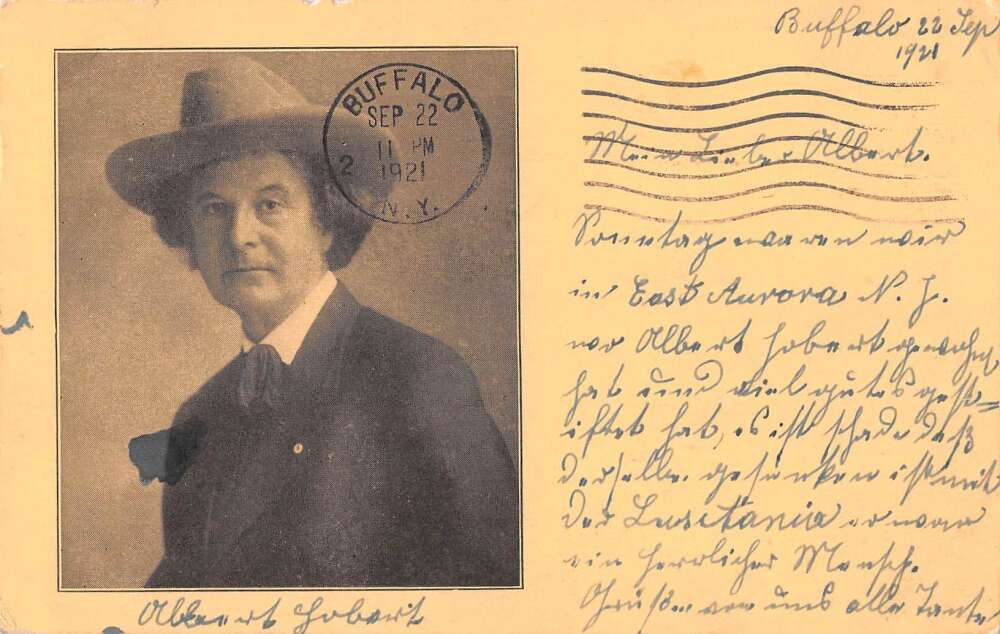 Buffalo 22 Sep
1921
BUFFALO
SEP 22
11 PM
2 1921
N.Y.
Mein Lieber Albert.
Sonntag waren wir
in East Aurora N. J.
wo Albert Hobert gewohnt
hat und viel gutes gest=
iftet hat, es ist schade daß
derselbe gesunken ist mit
der Lusitania er war
ein herrlicher Mensch.
Grüße von uns alle Tante
Albert Hobert